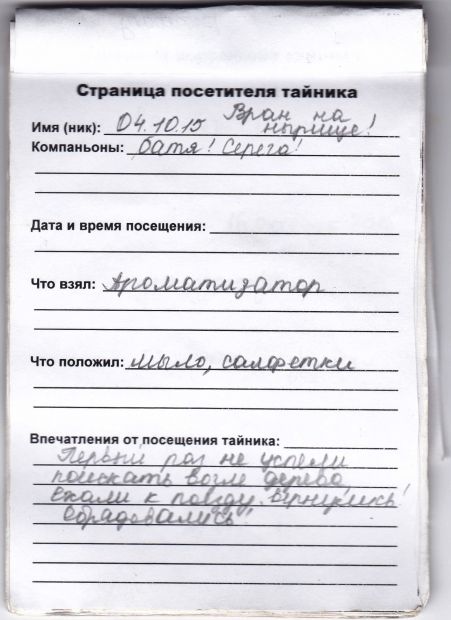 Страница посетителя тайника
Имя (ник): 04.10.15 Вран на нырище!
Компаньоны: батя! Серега!
Дата и время посещения:
Что взял: Ароматизатор
Что положил: мыло, салфетки
Впечатления от посещения тайника:
Первый раз не успели
поискать возле дерева,
ехали к поезду. Вернулись!
Обрадовались!